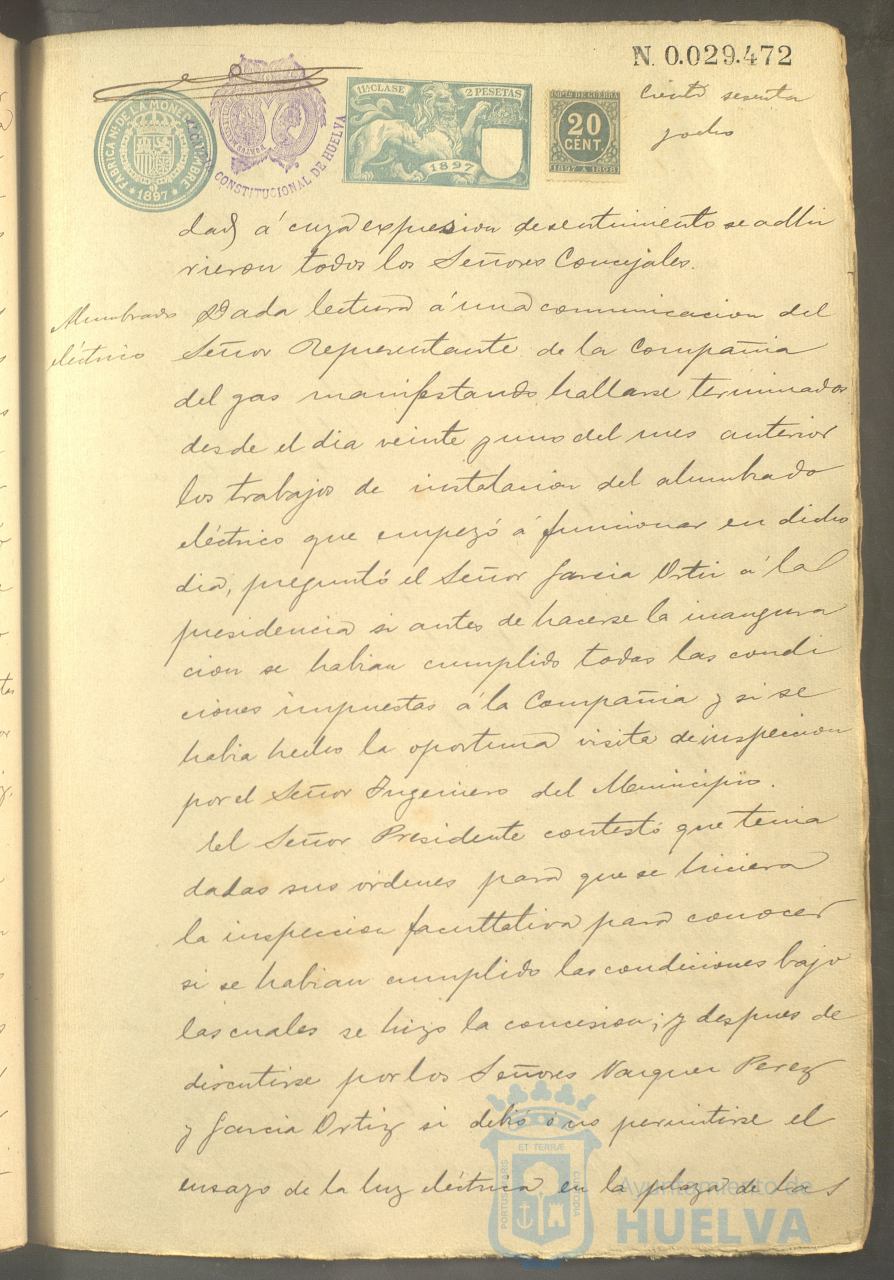 N. 0.029.472
Ciento sesenta
y ocho
FABRICA NL. DE LA MONEDA Y TIMBRE
1897
CONSTITUCIONAL DE HUELVA
11ª CLASE 2 PESETAS
1897
IMPTO DE GUERRA
20
CENT.
1897 A 1898
dad á cuya expresion de sentimiento se adhi
rieron todos los Señores Concejales.
Alumbrado
eléctrico
Dada lectura á una comunicacion del
Señor Representante de la Compañia
del gas manifestando hallarse terminados
desde el dia veinte y uno del mes anterior
los trabajos de instalacion del alumbrado
eléctrico que empezó á funcionar en dicho
dia, preguntó el Señor Garcia Ortiz á la
presidencia si antes de hacerse la inaugura
cion se habian cumplido todas las condi
ciones impuestas á la Compañia y si se
habia hecho la oportuna visita de inspeccion
por el Señor Ingeniero del Municipio.
El Señor Presidente contestó que tenia
dadas sus órdenes para que se hiciera
la inspeccion facultativa para conocer
si se habian cumplido las condiciones bajo
las cuales se hizo la concesion; y despues de
discutirse por los Señores Vazquez Perez
y Garcia Ortiz si debió ó no permitirse el
ensayo de la luz eléctrica en la plaza de las
PORTUS MARIS ET TERRÆ CUSTODIA
Ayuntamiento de
HUELVA